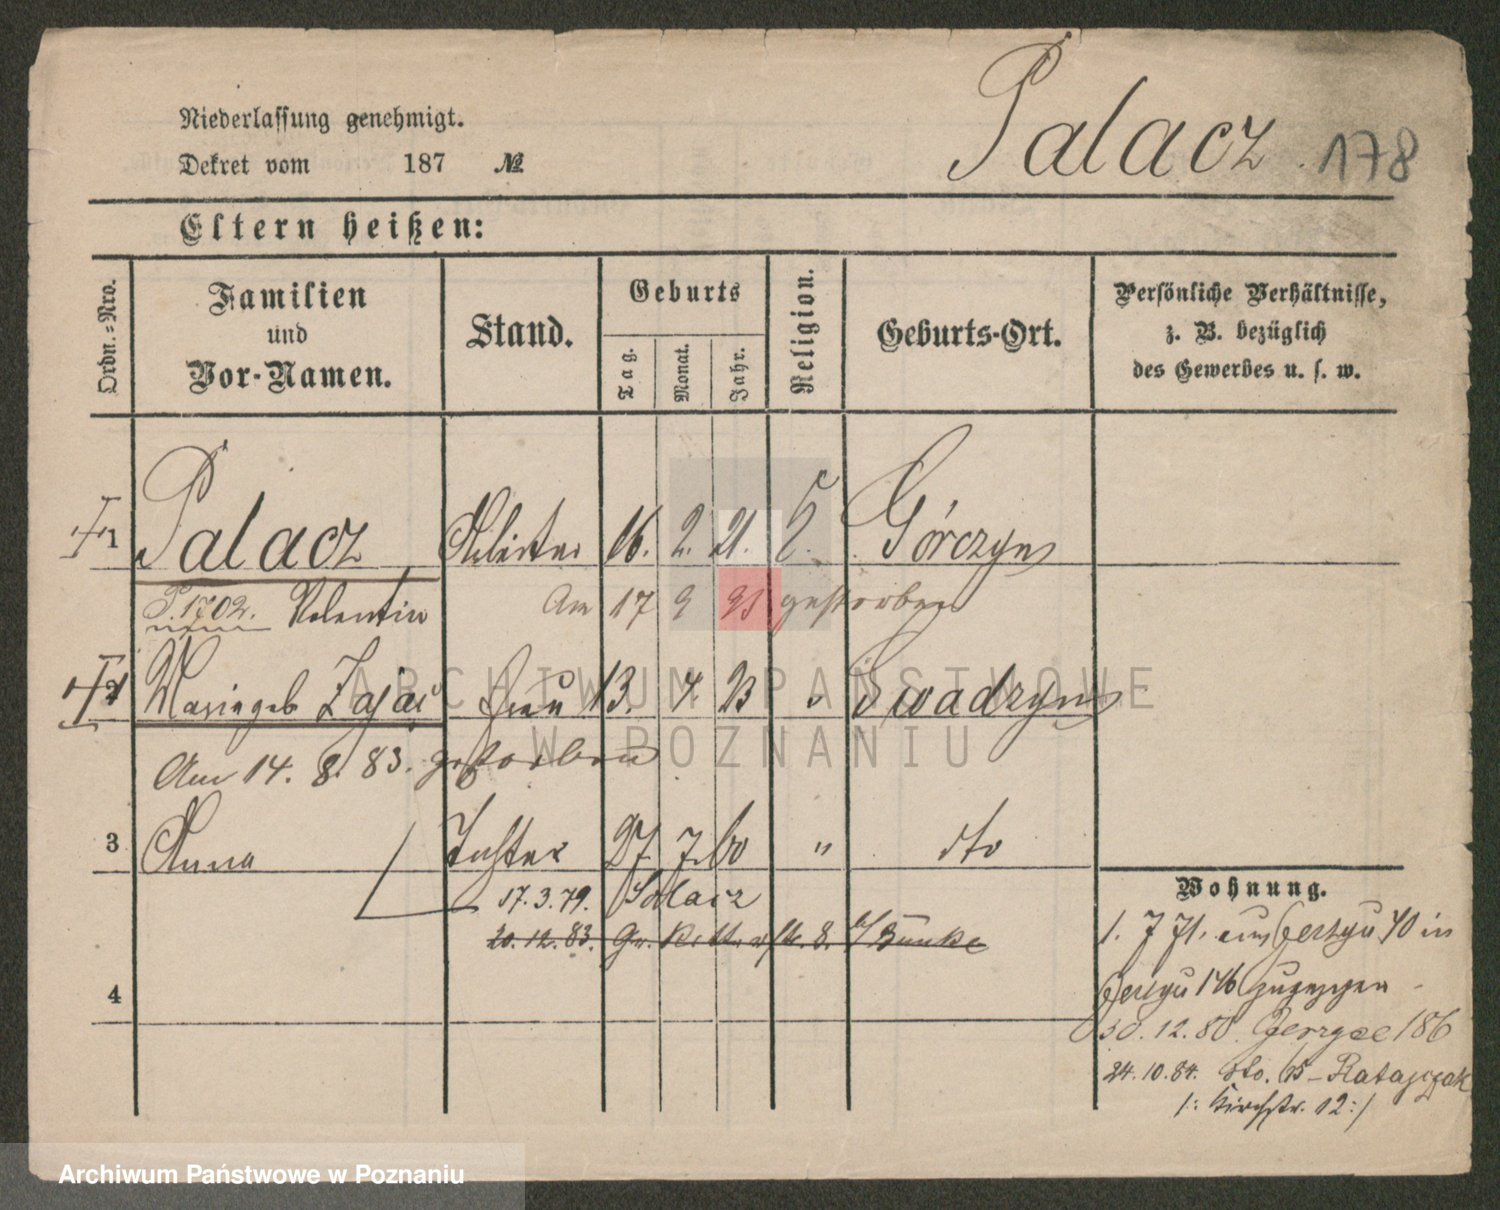 Palacz 178
Niederlassung genehmigt.
Dekret vom 187 №
Eltern heißen:
Ordn.=Nro.
Familien
und
Vor-Namen.
Stand.
Geburts
Tag.
Monat.
Jahr.
Religion.
Geburts-Ort.
Persönliche Verhältnisse,
z. B. bezüglich
des Gewerbes u. s. w.
1 Palacz 16. 2. 21. Górczyn
P. 1702. Valentin Am 17 9 93 gestorben
2 Zając Frau 13. 4. 23 " Swadzym
Am 14. 8. 83. gestorben
3 Anna Tochter 27 7. 60 " dto
17. 3. 79. Palacz
20. 12. 83. Gr. Ritter 8. Bunke
4
Wohnung.
1. 7 71. aus Gerzyce 40 in
Gerzyce 146 zugezogen
30. 12. 80. Gerzyce 186
24. 10. 84. dto. Ratajczak
/: Kirchstr. 12 :/
ARCHIWUM PAŃSTWOWE
W POZNANIU
Archiwum Państwowe w Poznaniu